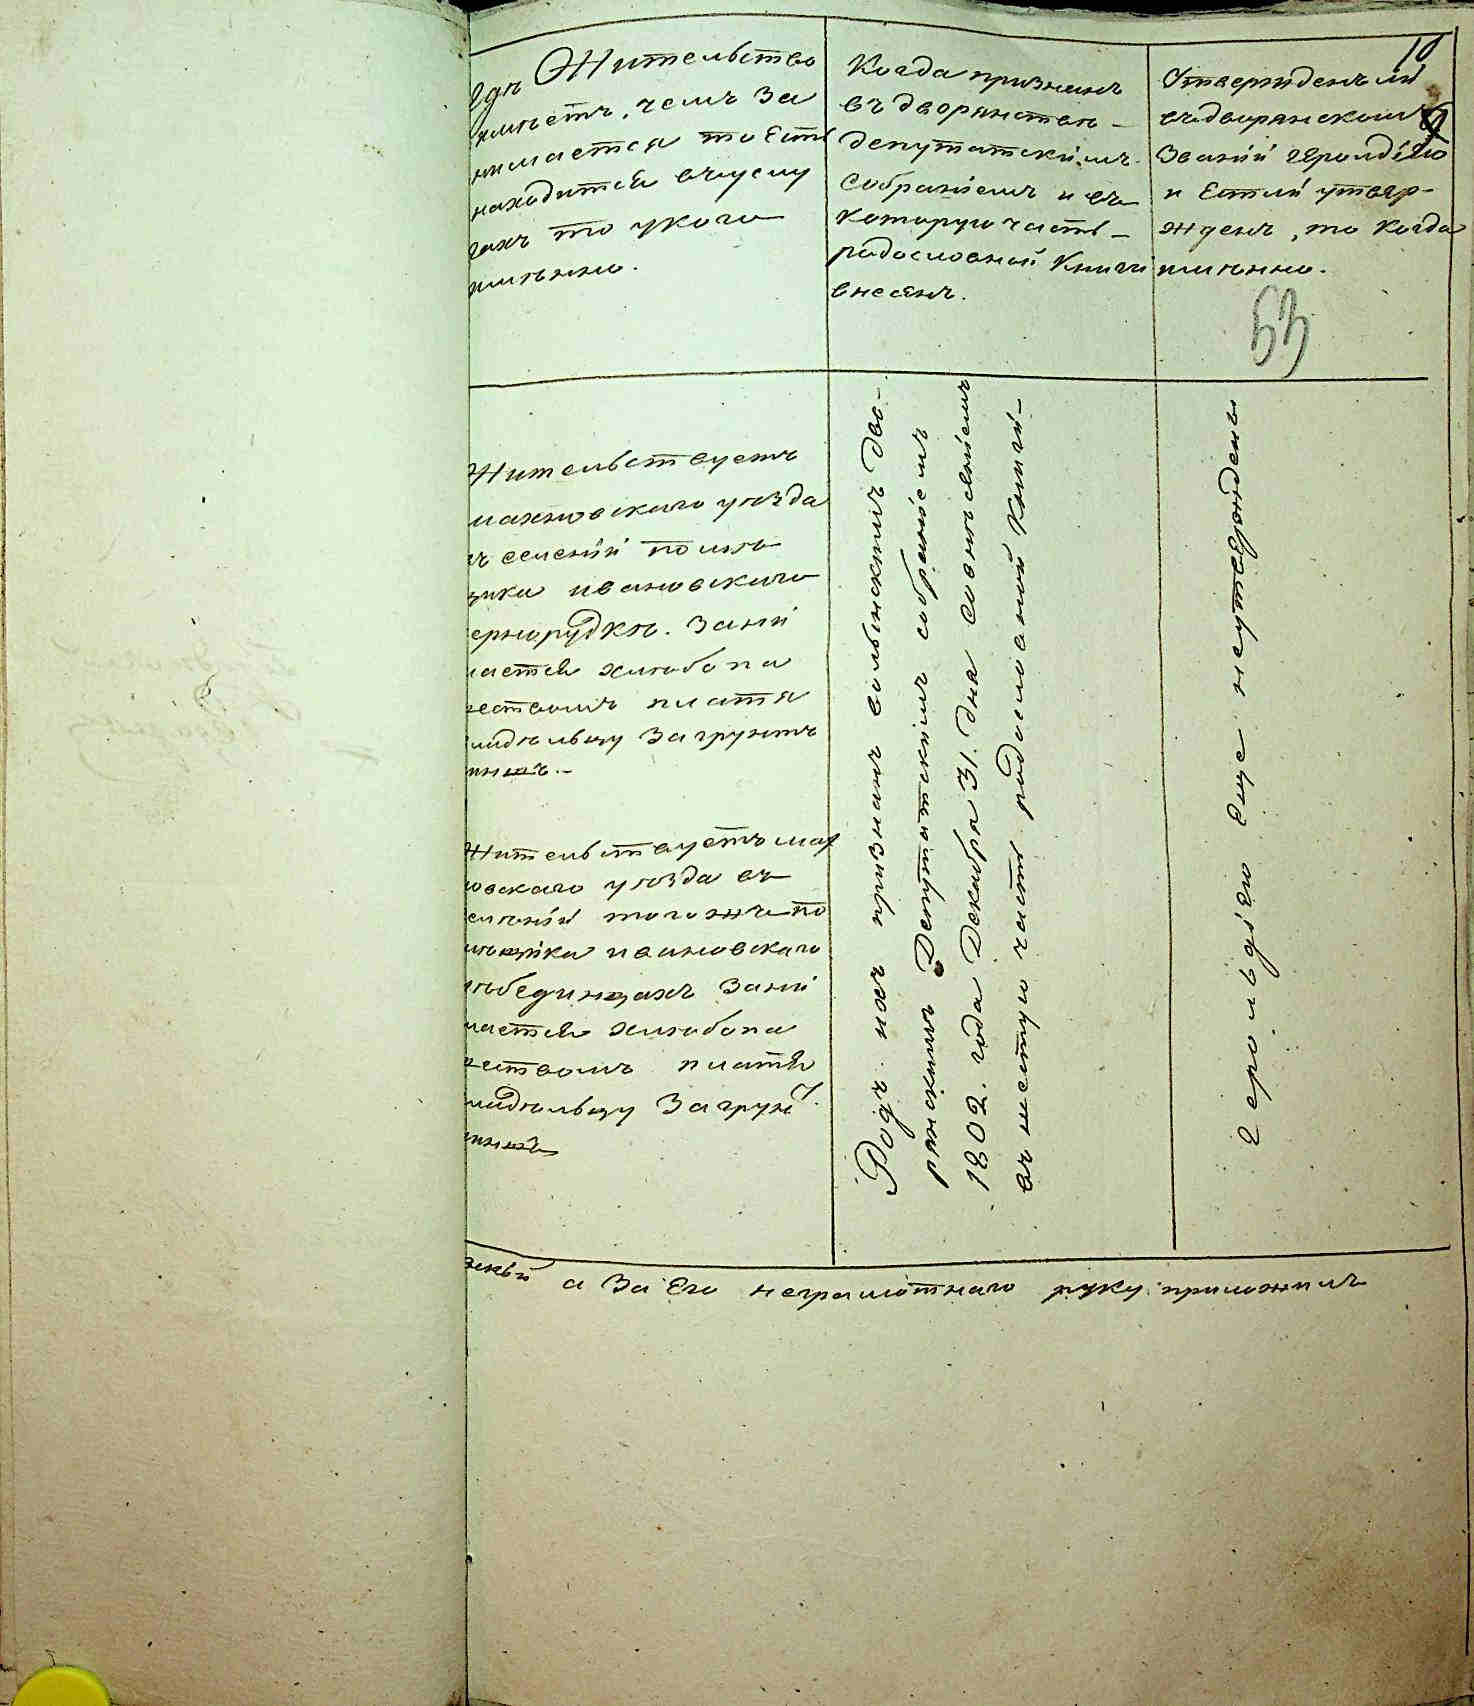 10
Гдѣ Жительство
имѣетъ, чемъ за
нимается то есть
находится вчуслу
гахъ то укого
имѣнно.
Когда признанъ
въ дворянствѣ
депутатскимъ
Собраніемъ и въ
которую часть
родословной книги
внесенъ.
Утвержденъ ли
въ дворянскомъ
Званіи герольдіею
и Естли утвер-
жденъ, то когда
имѣнно.
53
Жительствуетъ
махновского уѣзда
въ селеніи помѣ
щика ивановского
чернорудкѣ. Зани
мается хлѣбопа
шествомъ платя
владѣльцу за грунтъ
чиншъ.-
Жительствуетъ мах
новскаго уѣзда въ
селеніи тогожъ по
мѣщика ивановскаго
лѣбединцахъ Зани
мается хлѣбопа
шествомъ платя
владѣльцу За грун
чиншъ
Родъ ихъ признанъ волынскимъ дво-
рянскимъ Депутатскимъ собраніемъ
1802. года Декабря 31. дня совнѣсеніемъ
въ шестую часть родословной книги-
герольдіею Еще неутверждены
а За Его неграмотнаго руку приложилъ